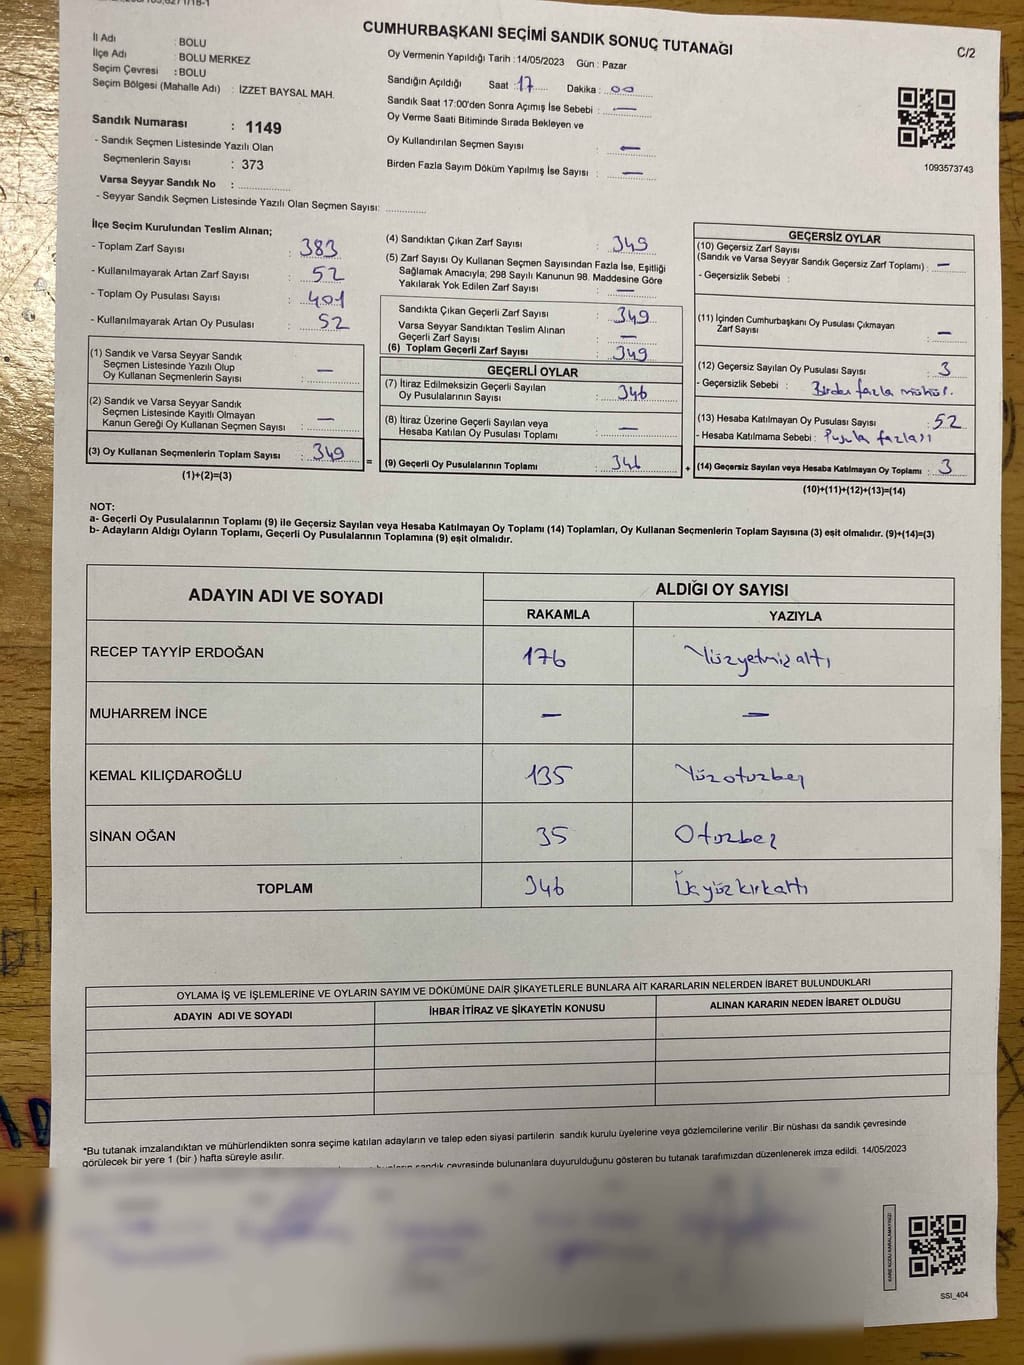 CUMHURBAŞKANI SEÇİMİ SANDIK SONUÇ TUTANAĞI
C/2
İl Adı : BOLU
İlçe Adı : BOLU MERKEZ
Seçim Çevresi : BOLU
Seçim Bölgesi (Mahalle Adı) : İZZET BAYSAL MAH.
Oy Vermenin Yapıldığı Tarih : 14/05/2023 Gün : Pazar
Sandığın Açıldığı Saat : 17 Dakika : 00
Sandık Saat 17:00'den Sonra Açımış İse Sebebi : —
Oy Verme Saati Bitiminde Sırada Bekleyen ve
Oy Kullandırılan Seçmen Sayısı : —
Birden Fazla Sayım Döküm Yapılmış İse Sayısı : —
1093573743
Sandık Numarası : 1149
- Sandık Seçmen Listesinde Yazılı Olan
Seçmenlerin Sayısı : 373
Varsa Seyyar Sandık No :
- Seyyar Sandık Seçmen Listesinde Yazılı Olan Seçmen Sayısı:
İlçe Seçim Kurulundan Teslim Alınan;
- Toplam Zarf Sayısı : 383
- Kullanılmayarak Artan Zarf Sayısı : 52
- Toplam Oy Pusulası Sayısı : 401
- Kullanılmayarak Artan Oy Pusulası : 52
(1) Sandık ve Varsa Seyyar Sandık
Seçmen Listesinde Yazılı Olup
Oy Kullanan Seçmenlerin Sayısı : —
(2) Sandık ve Varsa Seyyar Sandık
Seçmen Listesinde Kayıtlı Olmayan
Kanun Gereği Oy Kullanan Seçmen Sayısı : —
(3) Oy Kullanan Seçmenlerin Toplam Sayısı : 349
(1)+(2)=(3)
(4) Sandıktan Çıkan Zarf Sayısı : 349
(5) Zarf Sayısı Oy Kullanan Seçmen Sayısından Fazla İse, Eşitliği
Sağlamak Amacıyla; 298 Sayılı Kanunun 98. Maddesine Göre
Yakılarak Yok Edilen Zarf Sayısı : —
Sandıkta Çıkan Geçerli Zarf Sayısı : 349
Varsa Seyyar Sandıktan Teslim Alınan
Geçerli Zarf Sayısı : —
(6) Toplam Geçerli Zarf Sayısı : 349
GEÇERLİ OYLAR
(7) İtiraz Edilmeksizin Geçerli Sayılan
Oy Pusulalarının Sayısı : 346
(8) İtiraz Üzerine Geçerli Sayılan veya
Hesaba Katılan Oy Pusulası Toplamı : —
= (9) Geçerli Oy Pusulalarının Toplamı : 346
GEÇERSİZ OYLAR
(10) Geçersiz Zarf Sayısı
(Sandık ve Varsa Seyyar Sandık Geçersiz Zarf Toplamı) : —
- Geçersizlik Sebebi :
(11) İçinden Cumhurbaşkanı Oy Pusulası Çıkmayan
Zarf Sayısı : —
(12) Geçersiz Sayılan Oy Pusulası Sayısı : 3
- Geçersizlik Sebebi : Birden fazla mühür.
(13) Hesaba Katılmayan Oy Pusulası Sayısı : 52
- Hesaba Katılmama Sebebi : Pusula fazlası
+ (14) Geçersiz Sayılan veya Hesaba Katılmayan Oy Toplamı : 3
(10)+(11)+(12)+(13)=(14)
NOT:
a- Geçerli Oy Pusulalarının Toplamı (9) ile Geçersiz Sayılan veya Hesaba Katılmayan Oy Toplamı (14) Toplamları, Oy Kullanan Seçmenlerin Toplam Sayısına (3) eşit olmalıdır. (9)+(14)=(3)
b- Adayların Aldığı Oyların Toplamı, Geçerli Oy Pusulalarının Toplamına (9) eşit olmalıdır.
ADAYIN ADI VE SOYADI
ALDIĞI OY SAYISI
RAKAMLA YAZIYLA
RECEP TAYYİP ERDOĞAN 176 Yüzyetmişaltı
MUHARREM İNCE — —
KEMAL KILIÇDAROĞLU 135 Yüzotuzbeş
SİNAN OĞAN 35 Otuzbeş
TOPLAM 346 Üçyüzkırkaltı
OYLAMA İŞ VE İŞLEMLERİNE VE OYLARIN SAYIM VE DÖKÜMÜNE DAİR ŞİKAYETLERLE BUNLARA AİT KARARLARIN NELERDEN İBARET BULUNDUKLARI
ADAYIN ADI VE SOYADI İHBAR İTİRAZ VE ŞİKAYETİN KONUSU ALINAN KARARIN NEDEN İBARET OLDUĞU
*Bu tutanak imzalandıktan ve mühürlendikten sonra seçime katılan adayların ve talep eden siyasi partilerin sandık kurulu üyelerine veya gözlemcilerine verilir .Bir nüshası da sandık çevresinde
görülecek bir yere 1 (bir ) hafta süreyle asılır.
sandık çevresinde bulunanlara duyurulduğunu gösteren bu tutanak tarafımızdan düzenlenerek imza edildi. 14/05/2023
KARE KODU KARALAMAYINIZ!
SSI_404